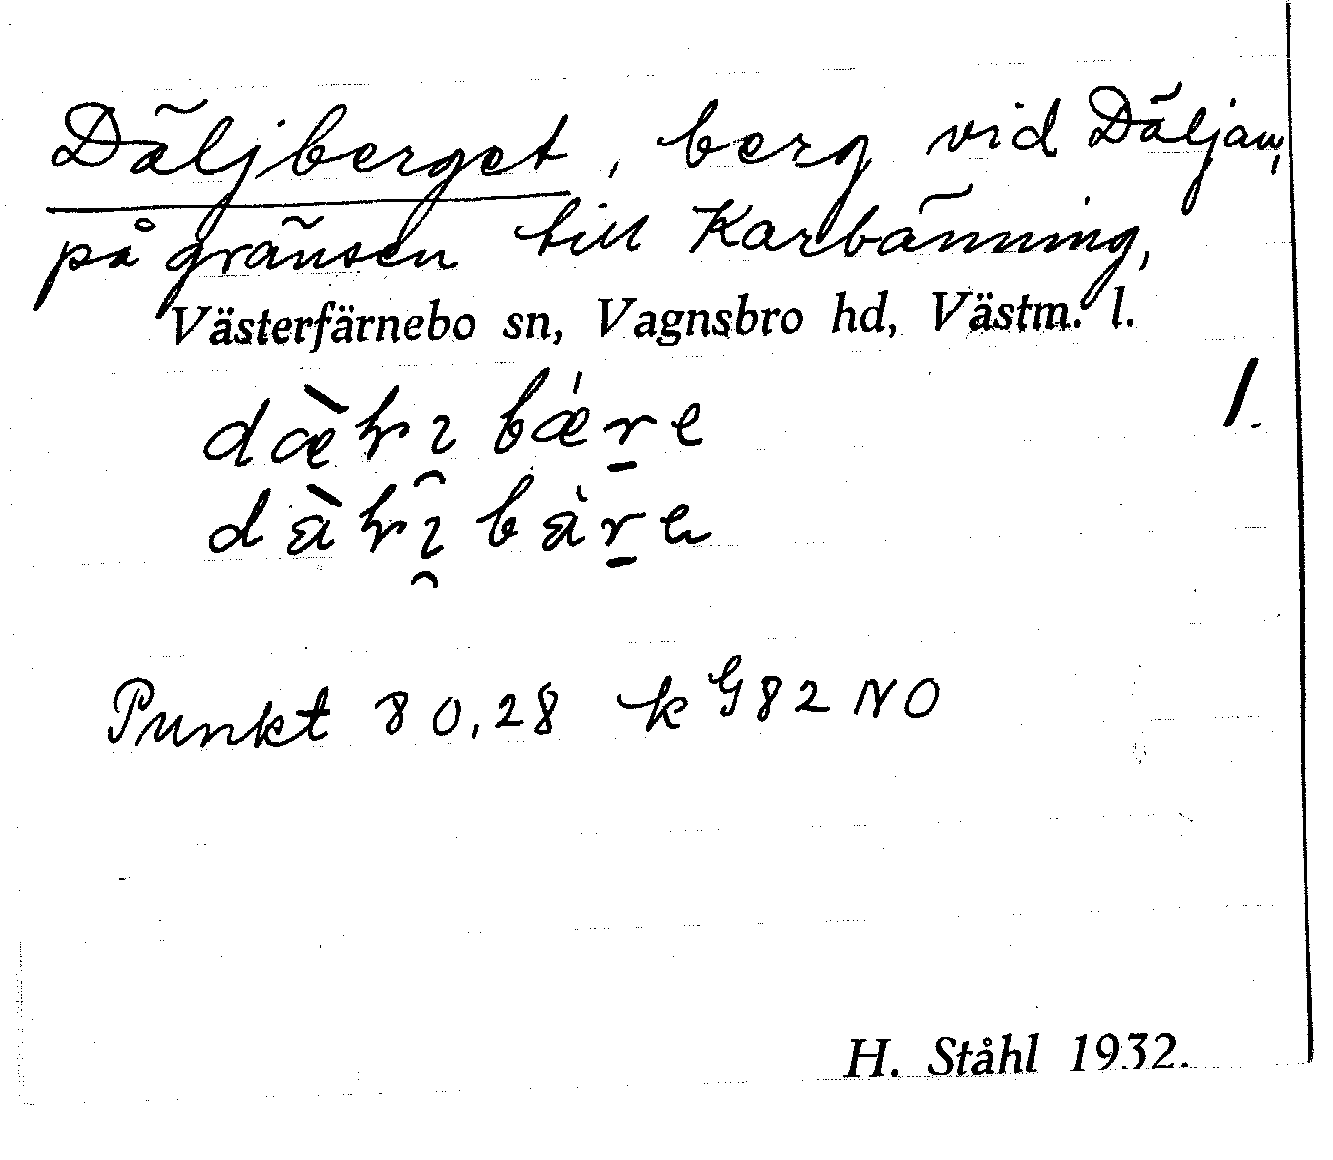 Däljberget, berg vid Däljan,
på gränsen till Karbänning,
Västerfärnebo sn, Vagnsbro hd, Västm. l.
1.
Punkt 80,28 k G82 NO
H. Ståhl 1932.